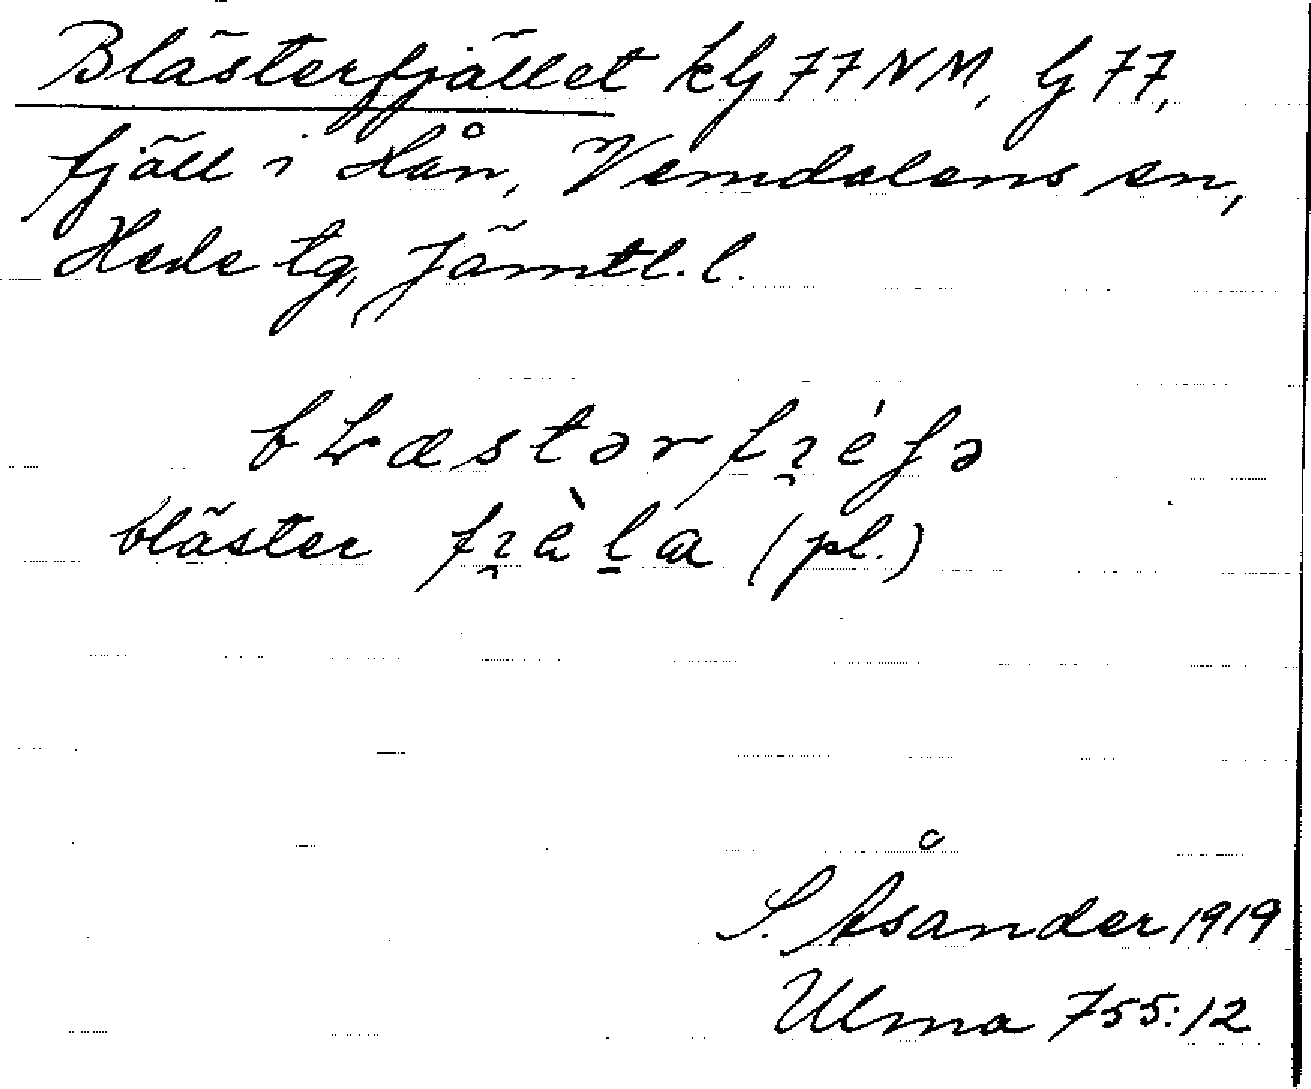 Blästerfjället kG 77 NM, G 77,
fjäll i Hån, Vemdalens sn,
Hede tg, Jämtl. l.
bLæstərfı̯éʃə
bläster fı̯èl̠a (pl.)
S. Åsander 1919
Ulma 755:12